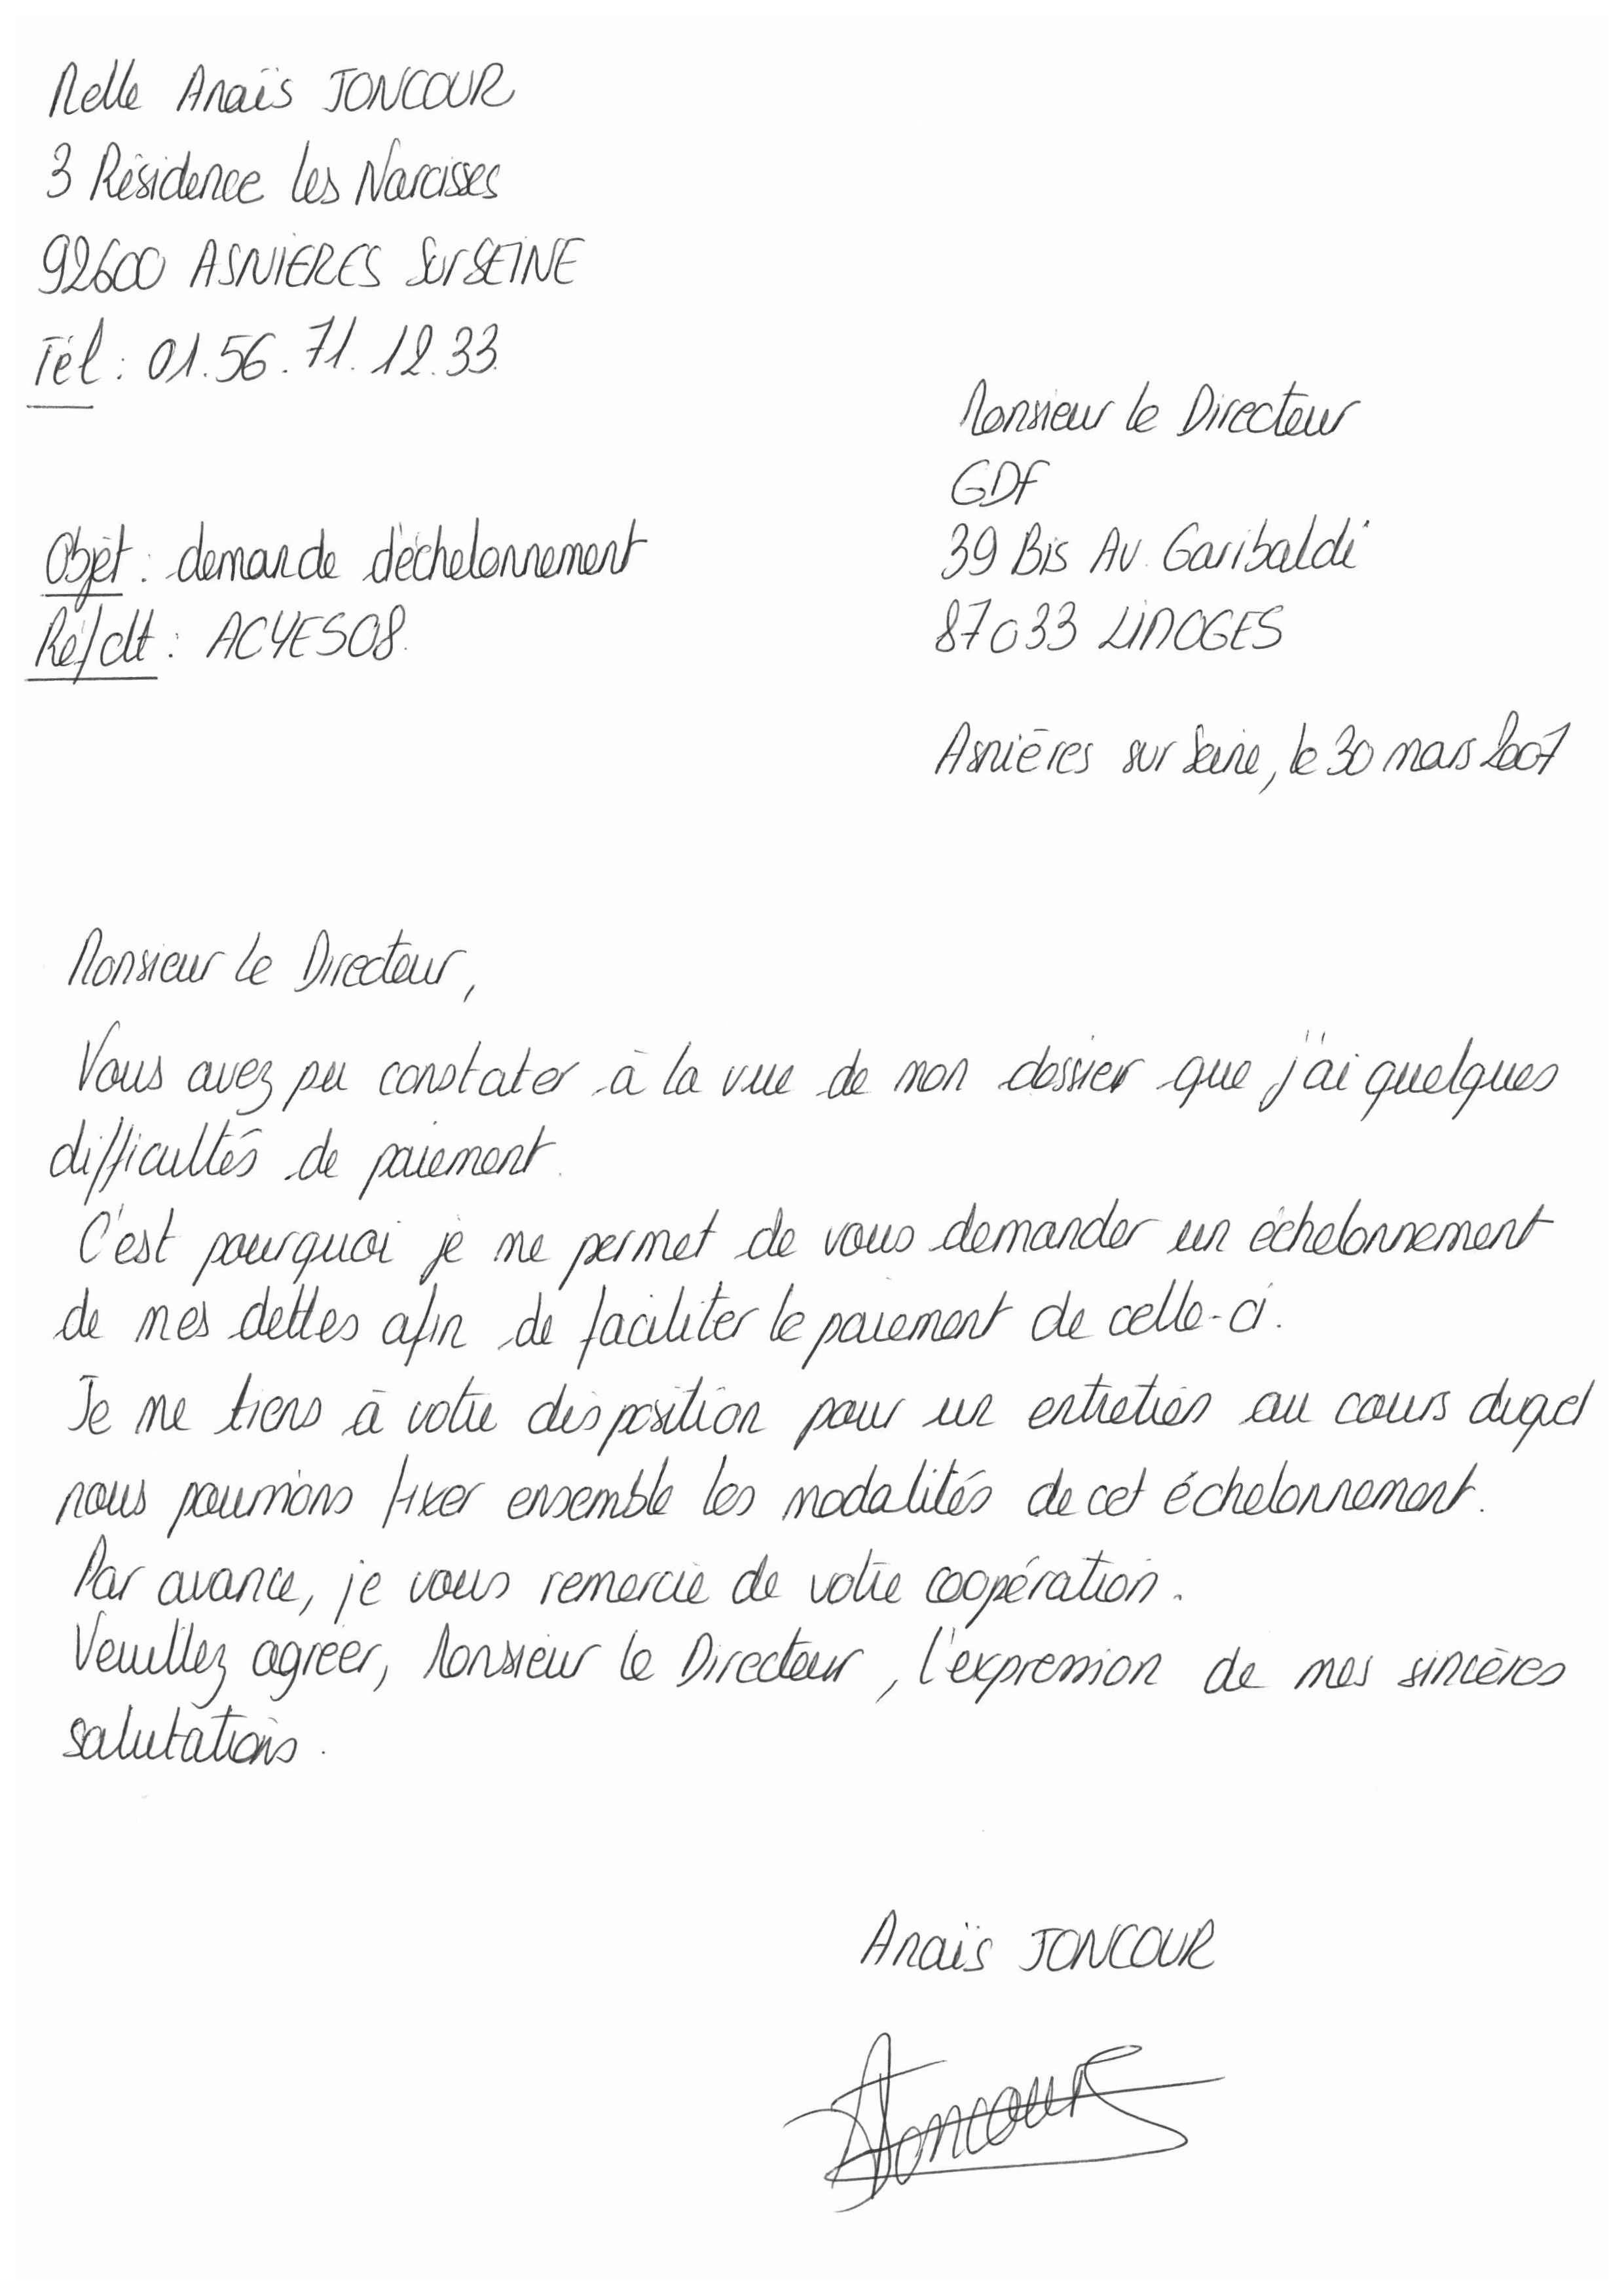 Melle Anaïs JONCOUR
3 Résidence les Narcisses
92600 ASNIERES Sur SEINE
Tél : 01.56.71.12.33.
Monsieur le Directeur
GDF
39 Bis Av. Garibaldi
87033 LIMOGES
Objet : demande d'échelonnement
Réf clt : AC4ES08.
Asnières sur Seine, le 30 mars 2007
Monsieur le Directeur,
Vous avez pu constater à la vue de mon dossier que j'ai quelques
difficultés de paiement.
C'est pourquoi je me permet de vous demander un échelonnement
de mes dettes afin de faciliter le paiement de celle-ci.
Je me tiens à votre disposition pour un entretien au cours duquel
nous pourrions fixer ensemble les modalités de cet échelonnement.
Par avance, je vous remercie de votre coopération.
Veuillez agréer, Monsieur le Directeur, l'expression de mes sincères
salutations.
Anaïs JONCOUR
AJoncour